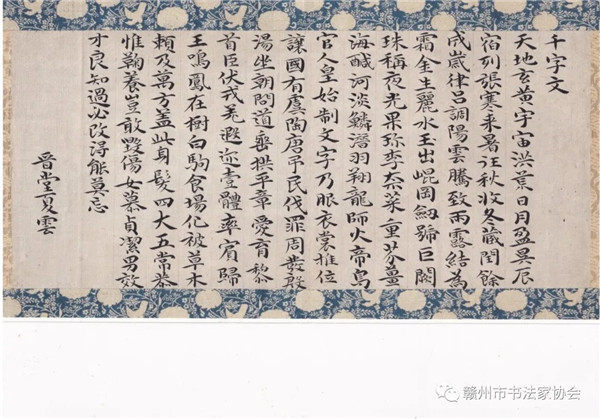 千字文
天地玄黄宇宙洪荒日月盈昃辰
宿列張寒来暑往秋收冬蔵閏餘
成歲律吕調陽雲騰致雨露結為
霜金生麗水玉出崐岡劔號巨闕
珠稱夜光果珎李柰菜重芥薑
海醎河淡鱗潛羽翔龍師火帝鳥
官人皇始制文字乃服衣裳推位
讓國有虞陶唐弔民伐罪周發殷
湯坐朝問道垂拱平章愛育黎
首臣伏戎羌遐迩壹體率賓歸
王鳴鳳在樹白駒食場化被草木
賴及萬方盖此身髮四大五常恭
惟鞠養豈敢毀傷女慕貞潔男效
才良知過必改得能莫忘
晋堂夏雲
赣州市书法家协会